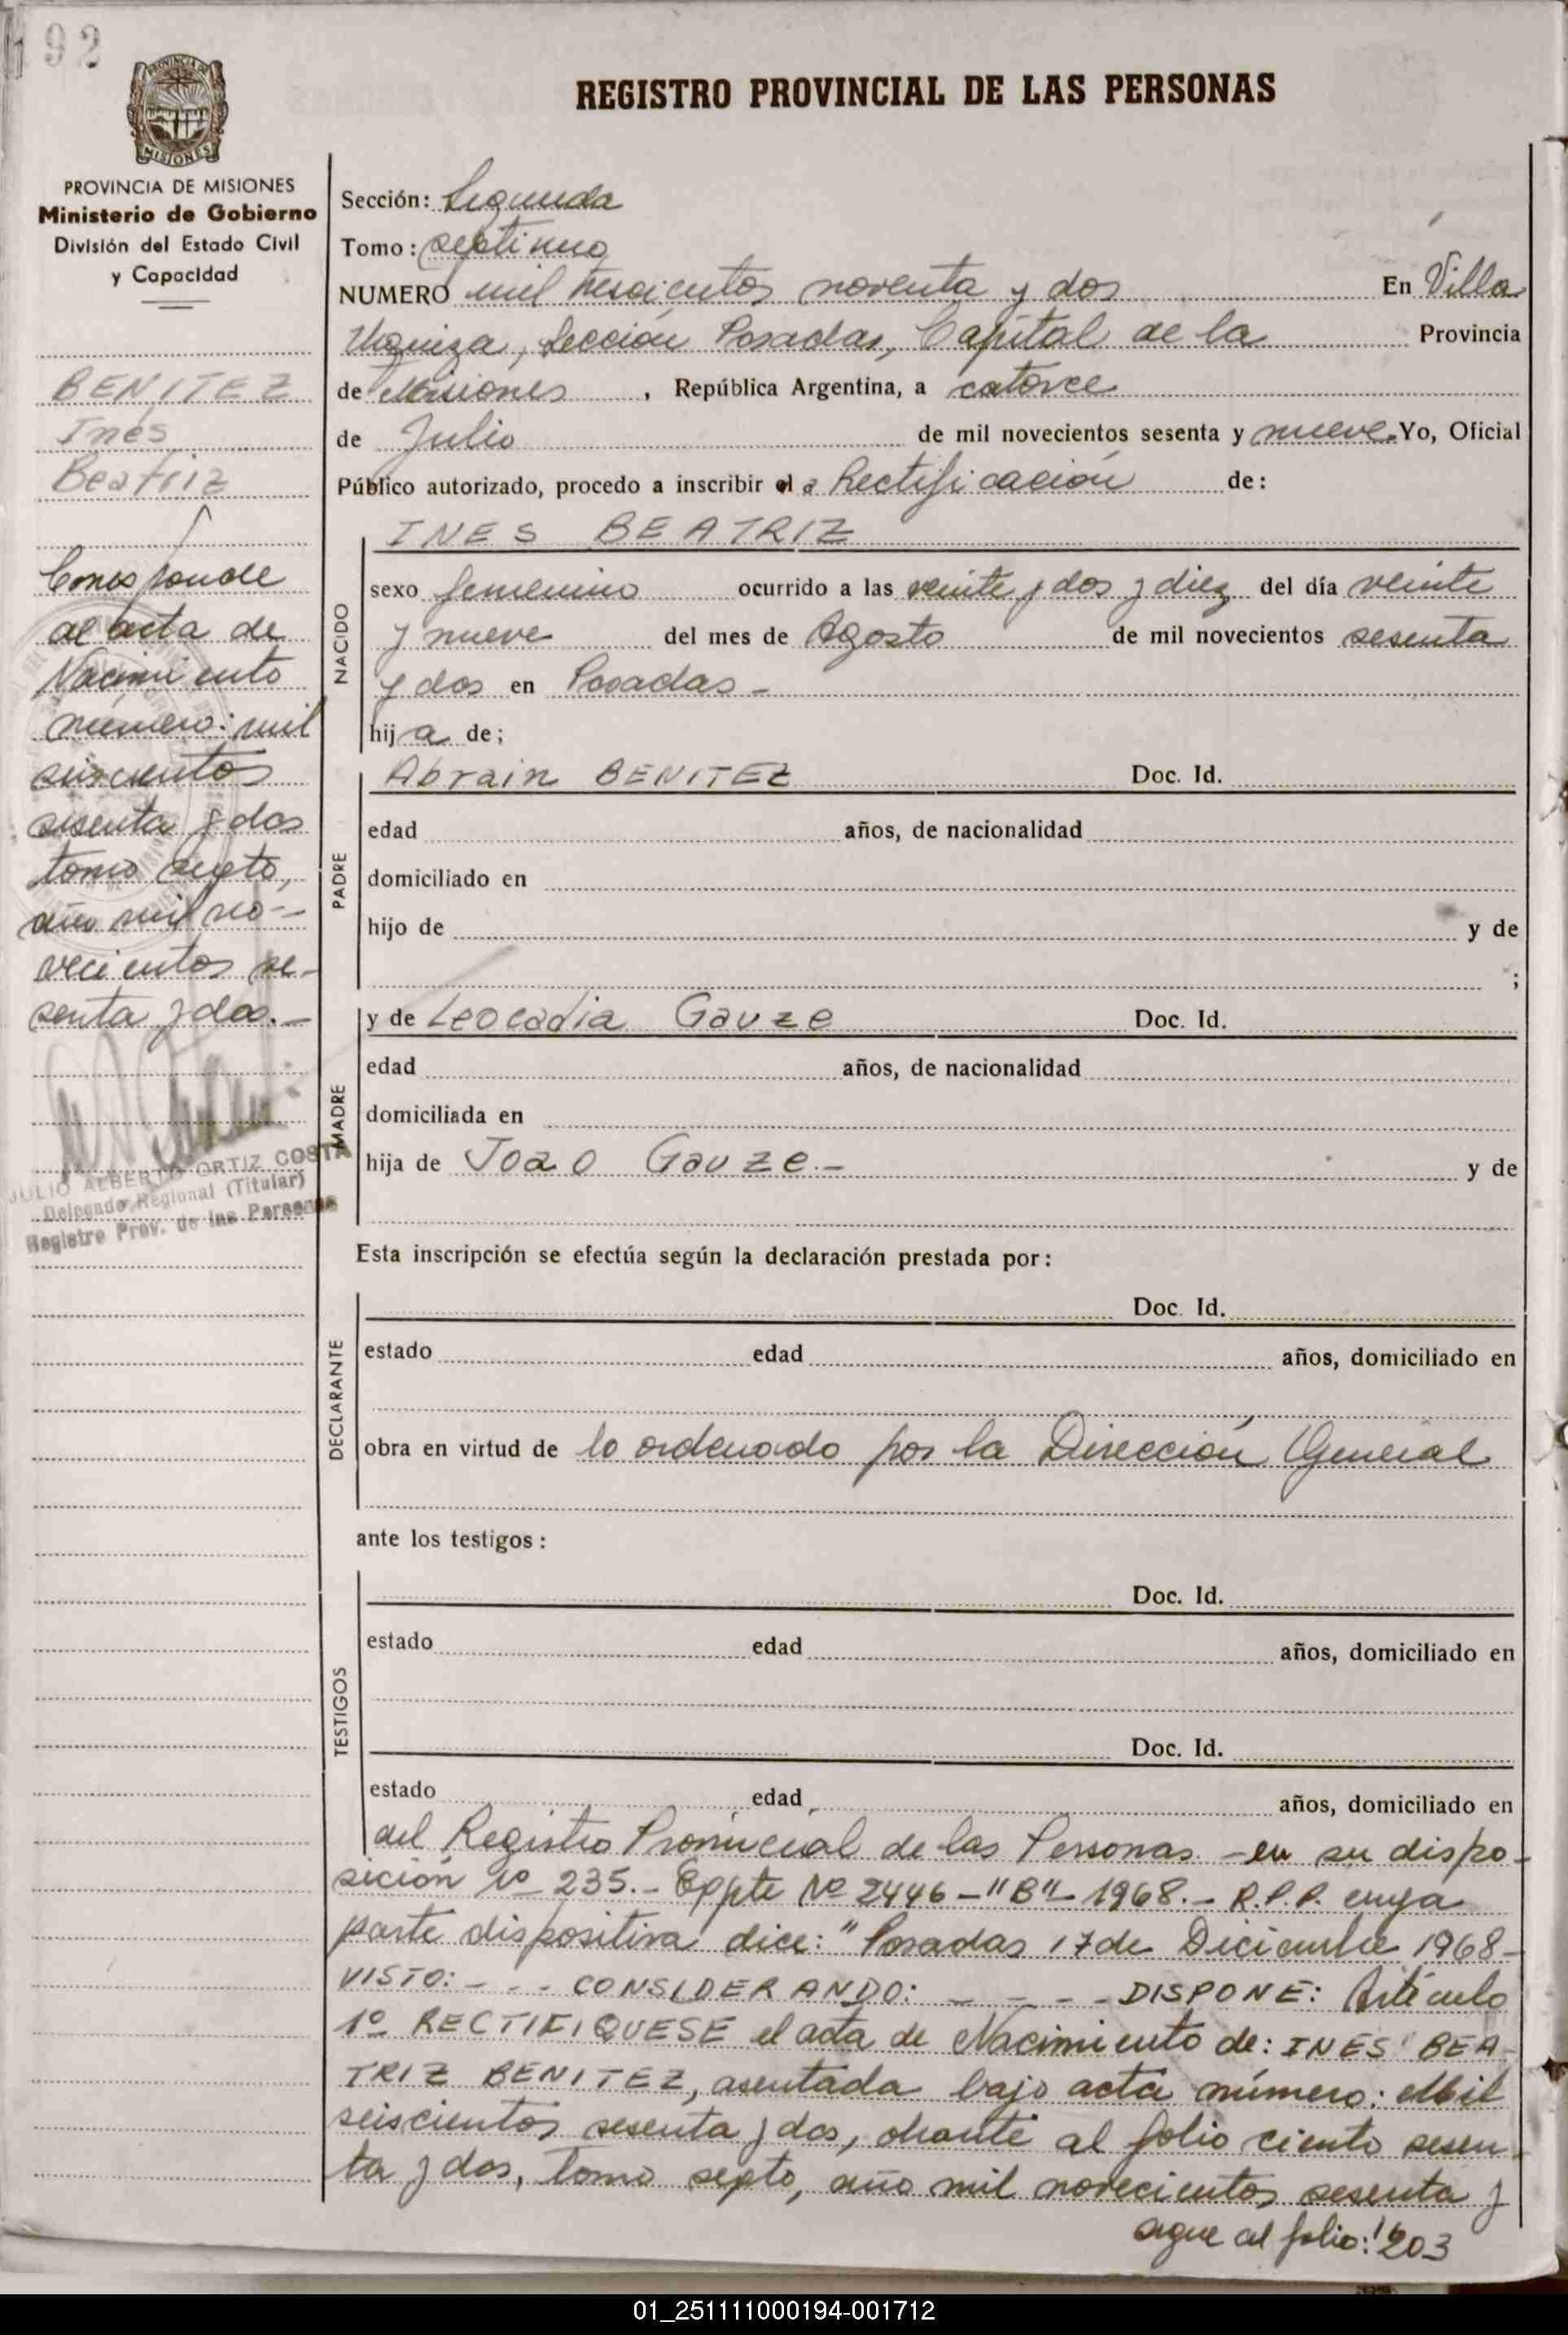 192
REGISTRO PROVINCIAL DE LAS PERSONAS
MISIONES
PROVINCIA DE MISIONES
Ministerio de Gobierno
División del Estado Civil
y Capacidad
BENITEZ
Inés
Beatriz
Corresponde
al acta de
Nacimiento
número: mil
seiscientos
sesenta y dos
tomo sexto,
año mil no-
vecientos se-
senta y dos.-
JULIO ALBERTO ORTIZ COSTA
Delegado Regional (Titular)
Registro Prov. de las Personas
Sección: Segunda
Tomo: septimo
NUMERO mil trescientos noventa y dos En Villa
Urquiza, Sección Posadas, Capital de la Provincia
de Misiones, República Argentina, a catorce
de Julio de mil novecientos sesenta y nueve. Yo, Oficial
Público autorizado, procedo a inscribir el a Rectificación de:
INES BEATRIZ
NACIDO
sexo femenino ocurrido a las veinte y dos y diez del día veinte
y nueve del mes de Agosto de mil novecientos sesenta
y dos en Posadas-
hija de;
PADRE
Abrain BENITEZ Doc. Id.
edad años, de nacionalidad
domiciliado en
hijo de y de
;
MADRE
y de Leocadia Gauze Doc. Id.
edad años, de nacionalidad
domiciliada en
hija de Joao Gauze.- y de
Esta inscripción se efectúa según la declaración prestada por:
DECLARANTE
Doc. Id.
estado edad años, domiciliado en
obra en virtud de lo ordenado por la Dirección General
ante los testigos:
TESTIGOS
Doc. Id.
estado edad años, domiciliado en
Doc. Id.
estado edad años, domiciliado en
del Registro Provincial de las Personas -en su dispo-
sición Nº 235.- Eppte Nº 2446-"B"- 1968.- R.P.P. cuya
parte dispositiva dice: "Posadas 17 de Diciembre 1968-
VISTO: - - - CONSIDERANDO: - - - - DISPONE: Artículo
1º RECTIFIQUESE el acta de Nacimiento de: INES BEA-
TRIZ BENITEZ, asentada bajo acta número: Mil
seiscientos sesenta y dos, obrante al folio ciento sesen-
ta y dos, Tomo septo, año mil novecientos sesenta y
sigue al folio: 203
01_251111000194-001712